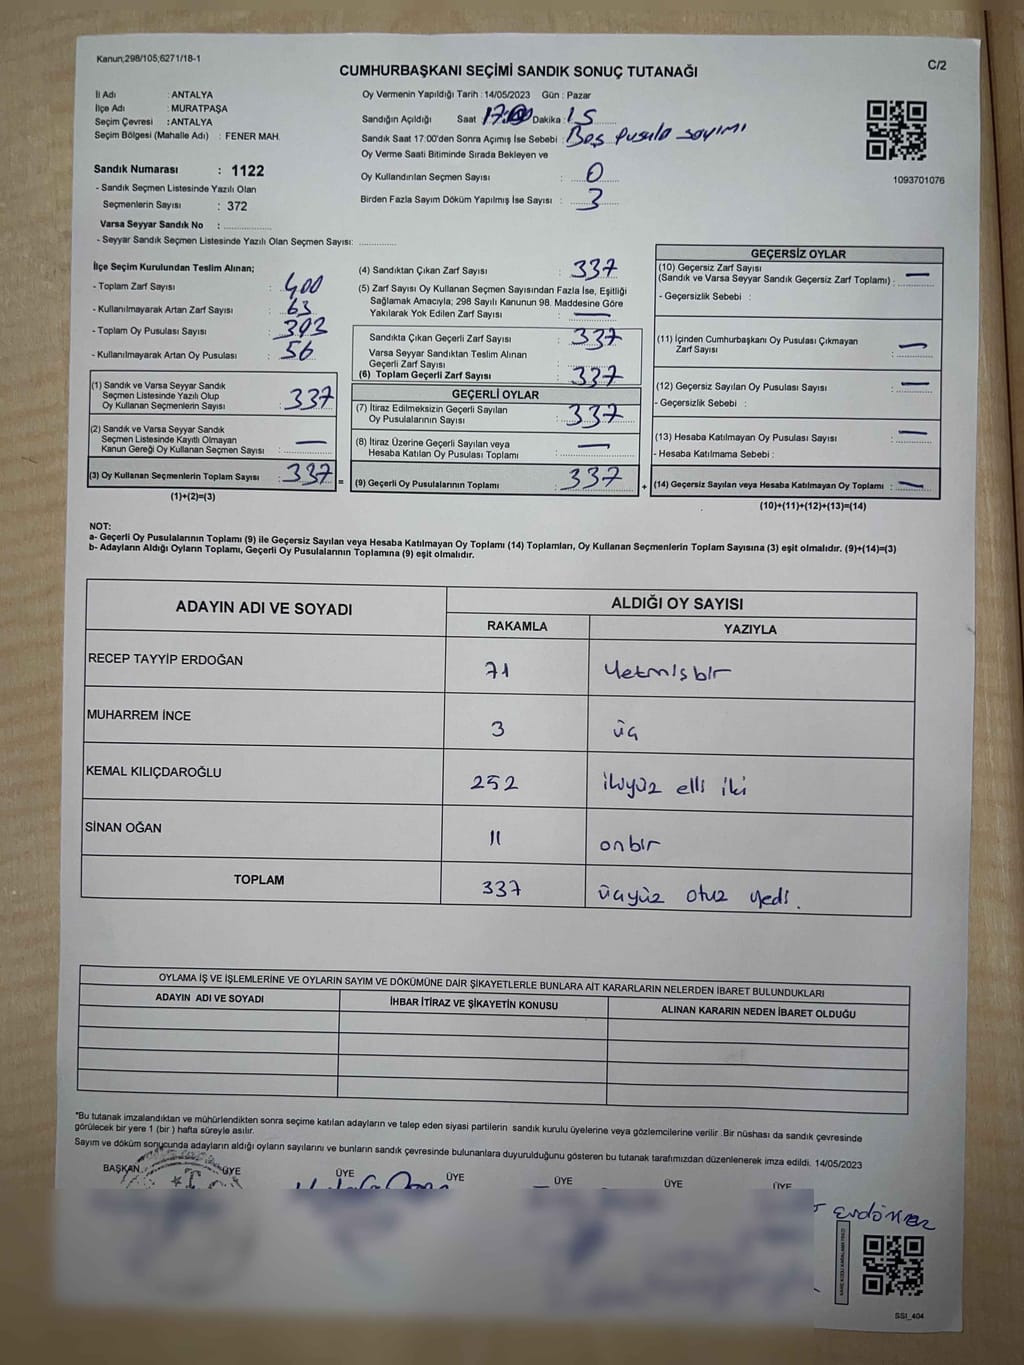 Kanun;298/105;6271/18-1
C/2
CUMHURBAŞKANI SEÇİMİ SANDIK SONUÇ TUTANAĞI
İl Adı : ANTALYA
İlçe Adı : MURATPAŞA
Seçim Çevresi : ANTALYA
Seçim Bölgesi (Mahalle Adı) : FENER MAH.
Sandık Numarası : 1122
- Sandık Seçmen Listesinde Yazılı Olan
Seçmenlerin Sayısı : 372
Varsa Seyyar Sandık No :
- Seyyar Sandık Seçmen Listesinde Yazılı Olan Seçmen Sayısı:
Oy Vermenin Yapıldığı Tarih : 14/05/2023 Gün : Pazar
Sandığın Açıldığı Saat 17:00 Dakika : 15
Sandık Saat 17:00'den Sonra Açımış İse Sebebi : Boş pusula sayımı
Oy Verme Saati Bitiminde Sırada Bekleyen ve
Oy Kullandırılan Seçmen Sayısı : 0
Birden Fazla Sayım Döküm Yapılmış İse Sayısı : 3
1093701076
İlçe Seçim Kurulundan Teslim Alınan;
- Toplam Zarf Sayısı : 400
- Kullanılmayarak Artan Zarf Sayısı : 63
- Toplam Oy Pusulası Sayısı : 393
- Kullanılmayarak Artan Oy Pusulası : 56
(1) Sandık ve Varsa Seyyar Sandık
Seçmen Listesinde Yazılı Olup
Oy Kullanan Seçmenlerin Sayısı : 337
(2) Sandık ve Varsa Seyyar Sandık
Seçmen Listesinde Kayıtlı Olmayan
Kanun Gereği Oy Kullanan Seçmen Sayısı : —
(3) Oy Kullanan Seçmenlerin Toplam Sayısı : 337
(1)+(2)=(3)
=
(4) Sandıktan Çıkan Zarf Sayısı : 337
(5) Zarf Sayısı Oy Kullanan Seçmen Sayısından Fazla İse, Eşitliği
Sağlamak Amacıyla; 298 Sayılı Kanunun 98. Maddesine Göre
Yakılarak Yok Edilen Zarf Sayısı : —
Sandıkta Çıkan Geçerli Zarf Sayısı : 337
Varsa Seyyar Sandıktan Teslim Alınan
Geçerli Zarf Sayısı :
(6) Toplam Geçerli Zarf Sayısı : 337
GEÇERLİ OYLAR
(7) İtiraz Edilmeksizin Geçerli Sayılan
Oy Pusulalarının Sayısı : 337
(8) İtiraz Üzerine Geçerli Sayılan veya
Hesaba Katılan Oy Pusulası Toplamı : —
(9) Geçerli Oy Pusulalarının Toplamı : 337
+
GEÇERSİZ OYLAR
(10) Geçersiz Zarf Sayısı
(Sandık ve Varsa Seyyar Sandık Geçersiz Zarf Toplamı) : —
- Geçersizlik Sebebi :
(11) İçinden Cumhurbaşkanı Oy Pusulası Çıkmayan
Zarf Sayısı : —
(12) Geçersiz Sayılan Oy Pusulası Sayısı : —
- Geçersizlik Sebebi :
(13) Hesaba Katılmayan Oy Pusulası Sayısı : —
- Hesaba Katılmama Sebebi :
(14) Geçersiz Sayılan veya Hesaba Katılmayan Oy Toplamı : —
(10)+(11)+(12)+(13)=(14)
NOT:
a- Geçerli Oy Pusulalarının Toplamı (9) ile Geçersiz Sayılan veya Hesaba Katılmayan Oy Toplamı (14) Toplamları, Oy Kullanan Seçmenlerin Toplam Sayısına (3) eşit olmalıdır. (9)+(14)=(3)
b- Adayların Aldığı Oyların Toplamı, Geçerli Oy Pusulalarının Toplamına (9) eşit olmalıdır.
ADAYIN ADI VE SOYADI ALDIĞI OY SAYISI
RAKAMLA YAZIYLA
RECEP TAYYİP ERDOĞAN 71 Yetmişbir
MUHARREM İNCE 3 üç
KEMAL KILIÇDAROĞLU 252 ikiyüz elli iki
SİNAN OĞAN 11 onbir
TOPLAM 337 üçyüz otuz yedi.
OYLAMA İŞ VE İŞLEMLERİNE VE OYLARIN SAYIM VE DÖKÜMÜNE DAİR ŞİKAYETLERLE BUNLARA AİT KARARLARIN NELERDEN İBARET BULUNDUKLARI
ADAYIN ADI VE SOYADI İHBAR İTİRAZ VE ŞİKAYETİN KONUSU ALINAN KARARIN NEDEN İBARET OLDUĞU
*Bu tutanak imzalandıktan ve mühürlendikten sonra seçime katılan adayların ve talep eden siyasi partilerin sandık kurulu üyelerine veya gözlemcilerine verilir .Bir nüshası da sandık çevresinde
görülecek bir yere 1 (bir ) hafta süreyle asılır.
Sayım ve döküm sonucunda adayların aldığı oyların sayılarını ve bunların sandık çevresinde bulunanlara duyurulduğunu gösteren bu tutanak tarafımızdan düzenlenerek imza edildi. 14/05/2023
BAŞKAN ÜYE ÜYE ÜYE ÜYE ÜYE ÜYE
SSI_404